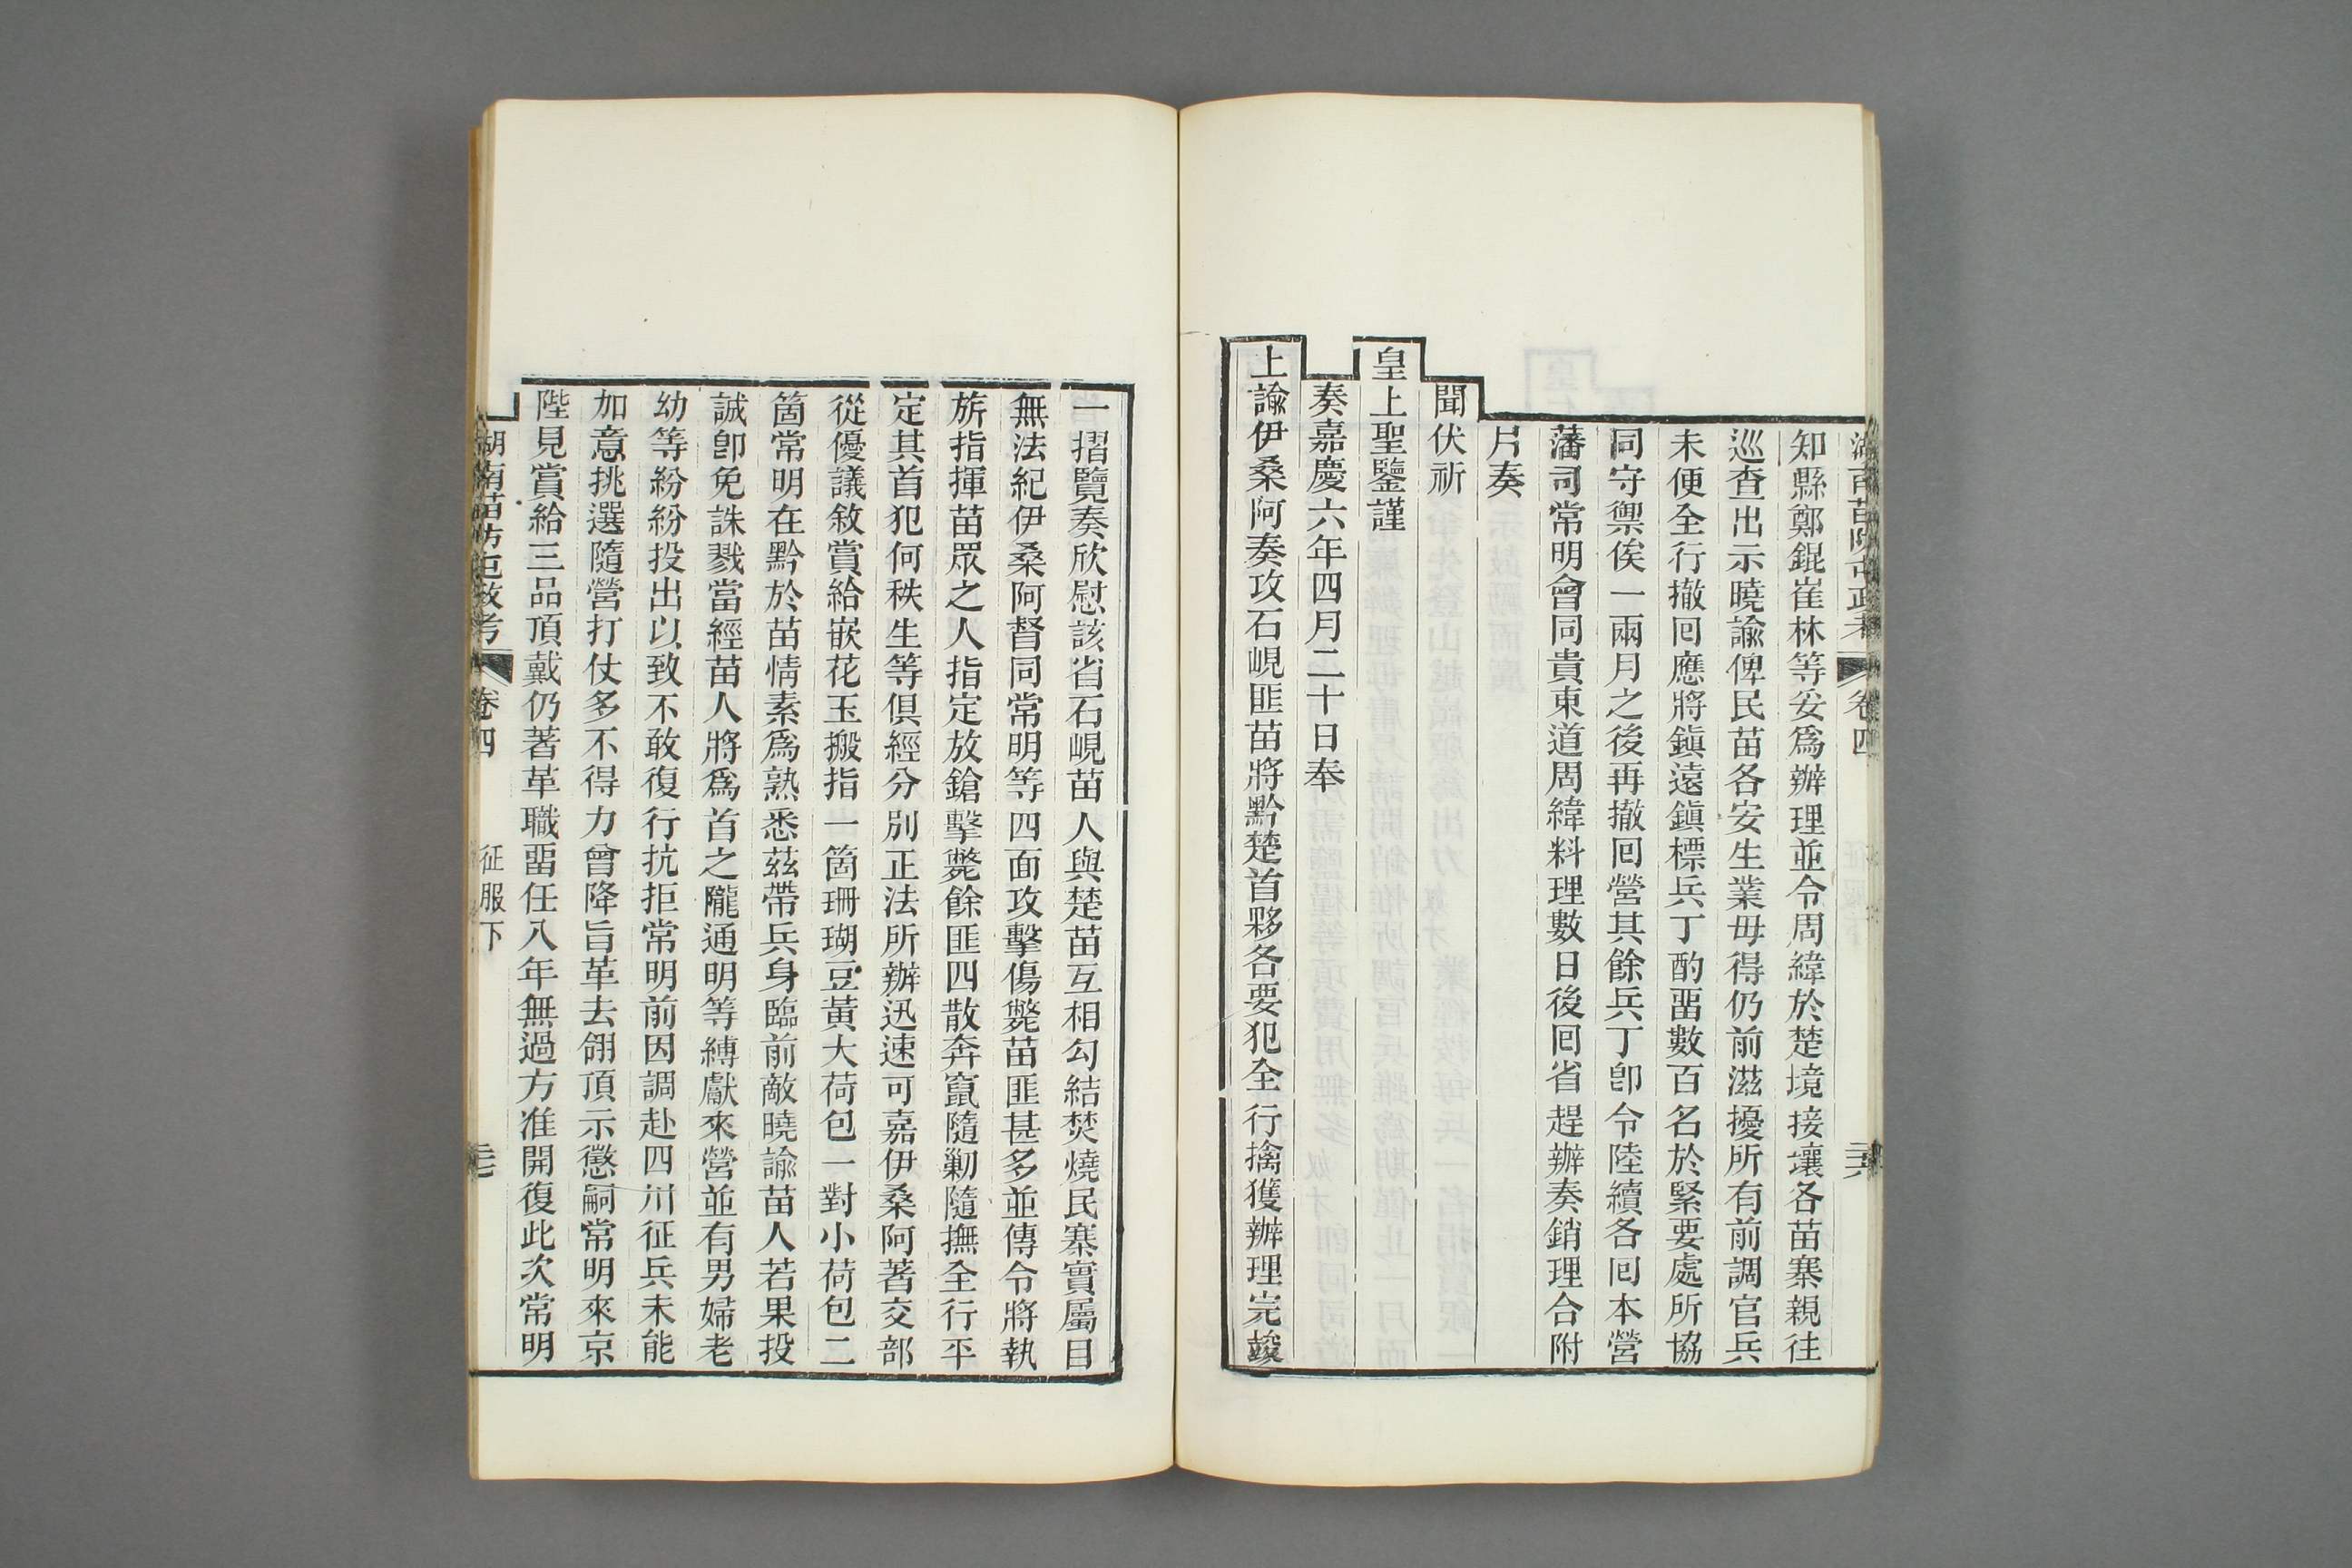 卷四
知縣鄭錕崔林等妥爲辦理並令周緯於楚境接壤各苗寨親往
巡查出示曉諭俾民苗各安生業毋得仍前滋擾所有前調官兵
未便全行撤囘應將鎭遠鎭標兵丁酌畱數百名於緊要處所協
同守禦俟一兩月之後再撤囘營其餘兵丁卽令陸續各囘本營
藩司常明會同貴東道周緯料理數日後囘省趕辦奏銷理合附
片奏
聞伏祈
皇上聖鑒謹
奏嘉慶六年四月二十日奉
上諭伊桑阿奏攻石峴匪苗將黔楚首夥各要犯全行擒獲辦理完竣
一摺覽奏欣慰該省石峴苗人與楚苗互相勾結焚燒民寨實屬目
無法紀伊桑阿督同常明等四面攻擊傷斃苗匪甚多並傳令將執
旂指揮苗眾之人指定放鎗擊斃餘匪四散奔竄隨勦隨撫全行平
定其首犯何秩生等俱經分別正法所辦迅速可嘉伊桑阿著交部
從優議敘賞給嵌花玉搬指一箇珊瑚豆黃大荷包一對小荷包二
箇常明在黔於苗情素爲熟悉茲帶兵身臨前敵曉諭苗人若果投
誠卽免誅戮當經苗人將爲首之隴通明等縛獻來營並有男婦老
幼等紛紛投出以致不敢復行抗拒常明前因調赴四川征兵未能
加意挑選隨營打仗多不得力曾降旨革去翎頂示懲嗣常明來京
陛見賞給三品頂戴仍著革職畱任八年無過方准開復此次常明
湖南苗防屯政考 卷四 征服下